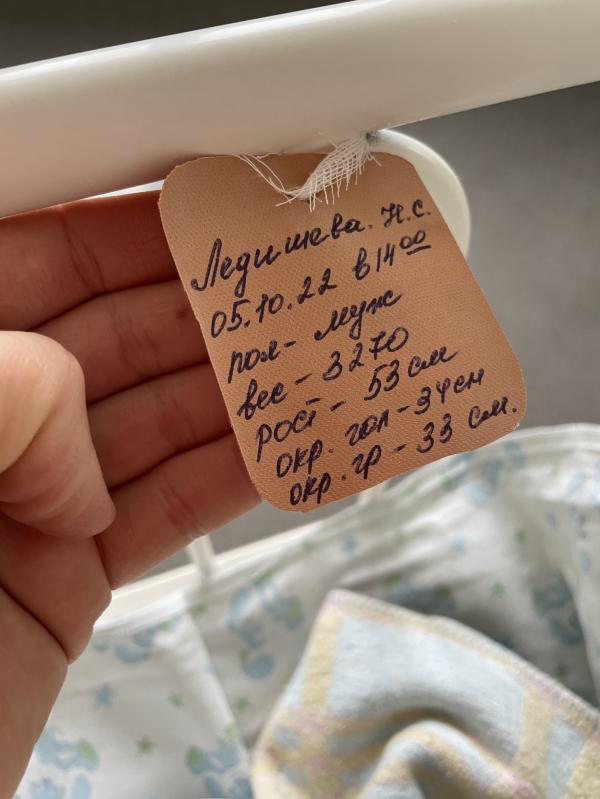 Ледишева. Н.С.
05.10.22 в 14⁰⁰
пол - муж
вес - 3270
рост - 53 см
окр. гол - 34 см
окр. гр - 33 см.